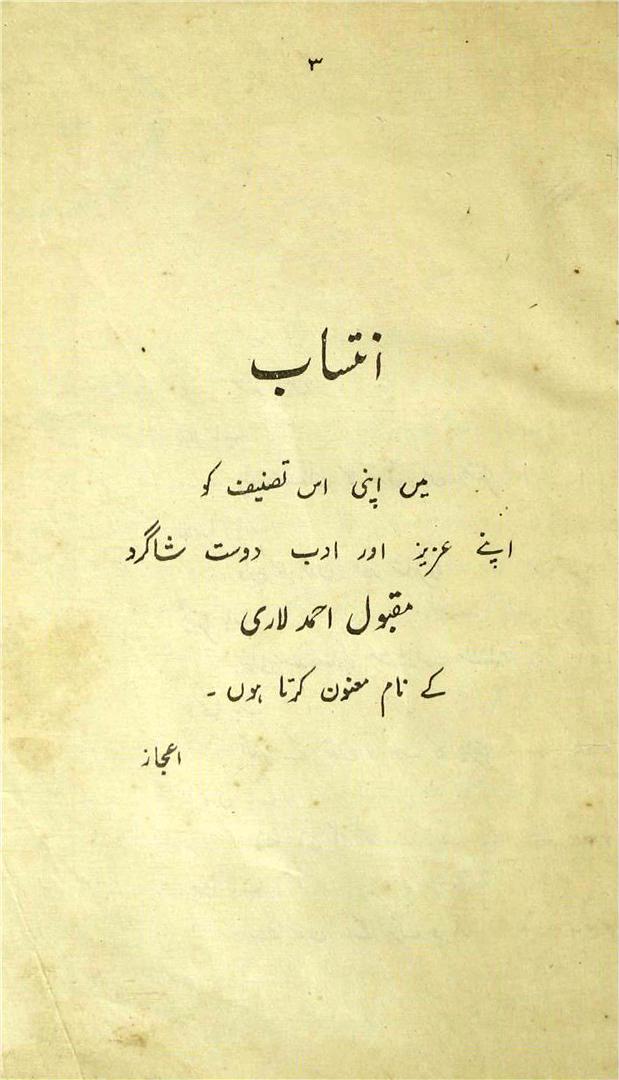 ۳
انتساب
میں اپنی اس تصنیف کو
اپنے عزیز اور ادب دوست شاگرد
مقبول احمد لاری
کے نام معنون کرتا ہوں ۔
اعجاز